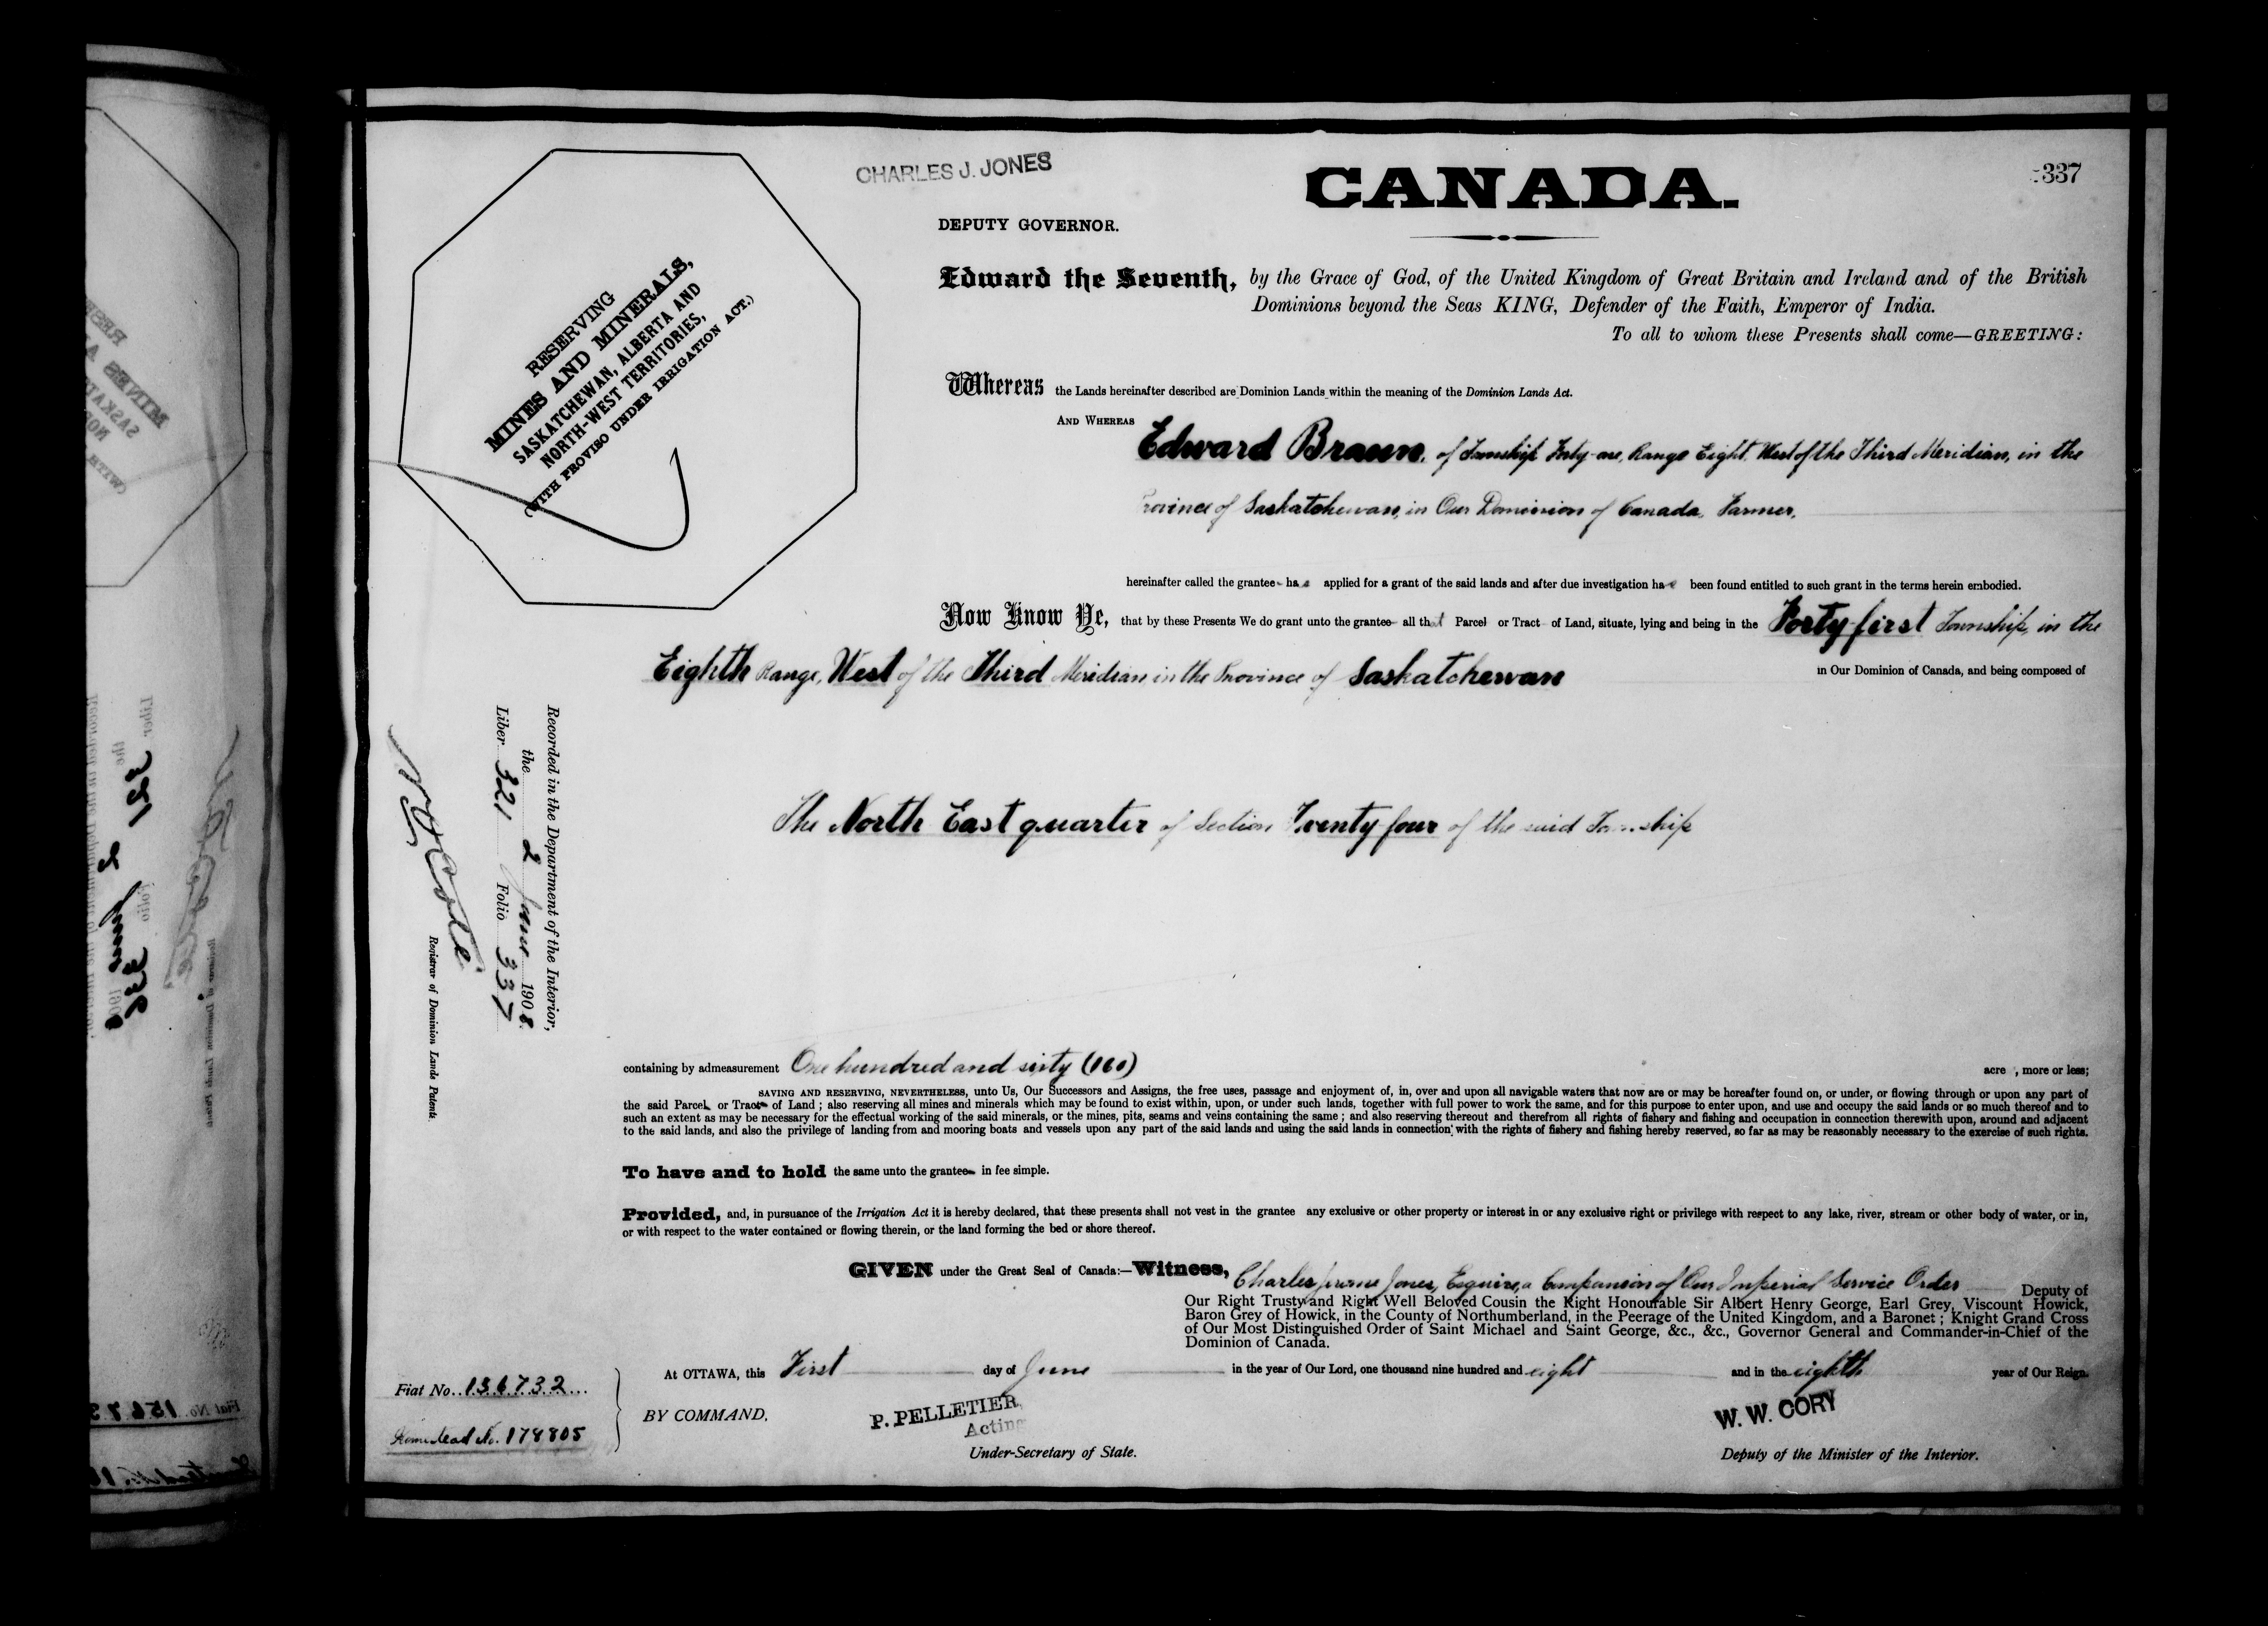 CHARLES J. JONES
CANADA.
337
DEPUTY GOVERNOR.
RESERVING
MINES AND MINERALS,
SASKATCHEWAN, ALBERTA AND
NORTH-WEST TERRITORIES,
(WITH PROVISO UNDER IRRIGATION ACT.)
Edward the Seventh, by the Grace of God, of the United Kingdom of Great Britain and Ireland and of the British
Dominions beyond the Seas KING, Defender of the Faith, Emperor of India.
To all to whom these Presents shall come—GREETING:
Whereas the Lands hereinafter described are Dominion Lands within the meaning of the Dominion Lands Act.
AND WHEREAS
Edward Braun, of Township Forty-one, Range Eight, West of the Third Meridian, in the
Province of Saskatchewan, in Our Dominion of Canada, Farmer,
hereinafter called the grantee has applied for a grant of the said lands and after due investigation has been found entitled to such grant in the terms herein embodied.
Now Know Ye, that by these Presents We do grant unto the grantee all that Parcel or Tract of Land, situate, lying and being in the Forty-first Township, in the
Eighth Range, West of the Third Meridian in the Province of Saskatchewan in Our Dominion of Canada, and being composed of
The North East quarter of Section Twenty four of the said Township
Recorded in the Department of the Interior,
the 2 June 1908
Liber 321 Folio 337
N O Coté
Registrar of Dominion Lands Patents.
containing by admeasurement One hundred and sixty (160) acre , more or less;
SAVING AND RESERVING, NEVERTHELESS, unto Us, Our Successors and Assigns, the free uses, passage and enjoyment of, in, over and upon all navigable waters that now are or may be hereafter found on, or under, or flowing through or upon any part of
the said Parcel or Tract of Land ; also reserving all mines and minerals which may be found to exist within, upon, or under such lands, together with full power to work the same, and for this purpose to enter upon, and use and occupy the said lands or so much thereof and to
such an extent as may be necessary for the effectual working of the said minerals, or the mines, pits, seams and veins containing the same ; and also reserving thereout and therefrom all rights of fishery and fishing and occupation in connection therewith upon, around and adjacent
to the said lands, and also the privilege of landing from and mooring boats and vessels upon any part of the said lands and using the said lands in connection with the rights of fishery and fishing hereby reserved, so far as may be reasonably necessary to the exercise of such rights.
To have and to hold the same unto the grantee in fee simple.
Provided, and, in pursuance of the Irrigation Act it is hereby declared, that these presents shall not vest in the grantee any exclusive or other property or interest in or any exclusive right or privilege with respect to any lake, river, stream or other body of water, or in,
or with respect to the water contained or flowing therein, or the land forming the bed or shore thereof.
GIVEN under the Great Seal of Canada:—Witness, Charles Jerome Jones, Esquire, a Companion of Our Imperial Service Order Deputy of
Our Right Trusty and Right Well Beloved Cousin the Right Honourable Sir Albert Henry George, Earl Grey, Viscount Howick,
Baron Grey of Howick, in the County of Northumberland, in the Peerage of the United Kingdom, and a Baronet ; Knight Grand Cross
of Our Most Distinguished Order of Saint Michael and Saint George, &c., &c., Governor General and Commander-in-Chief of the
Dominion of Canada.
At OTTAWA, this First day of June in the year of Our Lord, one thousand nine hundred and eight and in the eighth year of Our Reign.
Fiat No. 156732
Homestead No. 178805
BY COMMAND,
P. PELLETIER,
Acting
Under-Secretary of State.
W. W. CORY
Deputy of the Minister of the Interior.